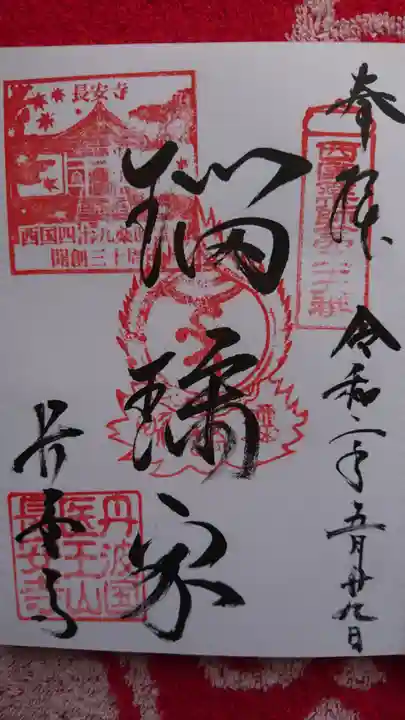 奉拝 令和二年五月廿九日
瑠璃閣
長安寺
長安寺
西国四十九薬師
開創三十周年
丹波国
医王山
長安寺